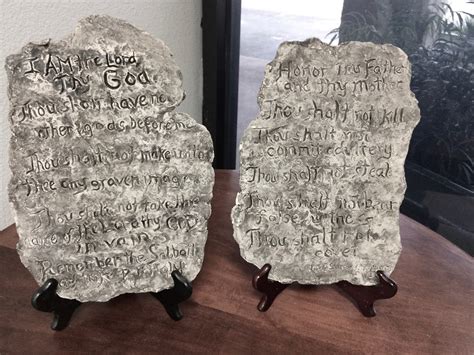 I AM the Lord
Thy God
Thou shalt have no
other gods before me
Thou shalt not make unto
thee any graven image
Thou shalt not take the
name of the Lord thy God
in vain
Remember the Sabbath
Honor thy Father
and thy mother
Thou shalt not kill
Thou shalt not
commit adultery
Thou shalt not steal
Thou shalt not bear
false witness
Thou shalt not
covet